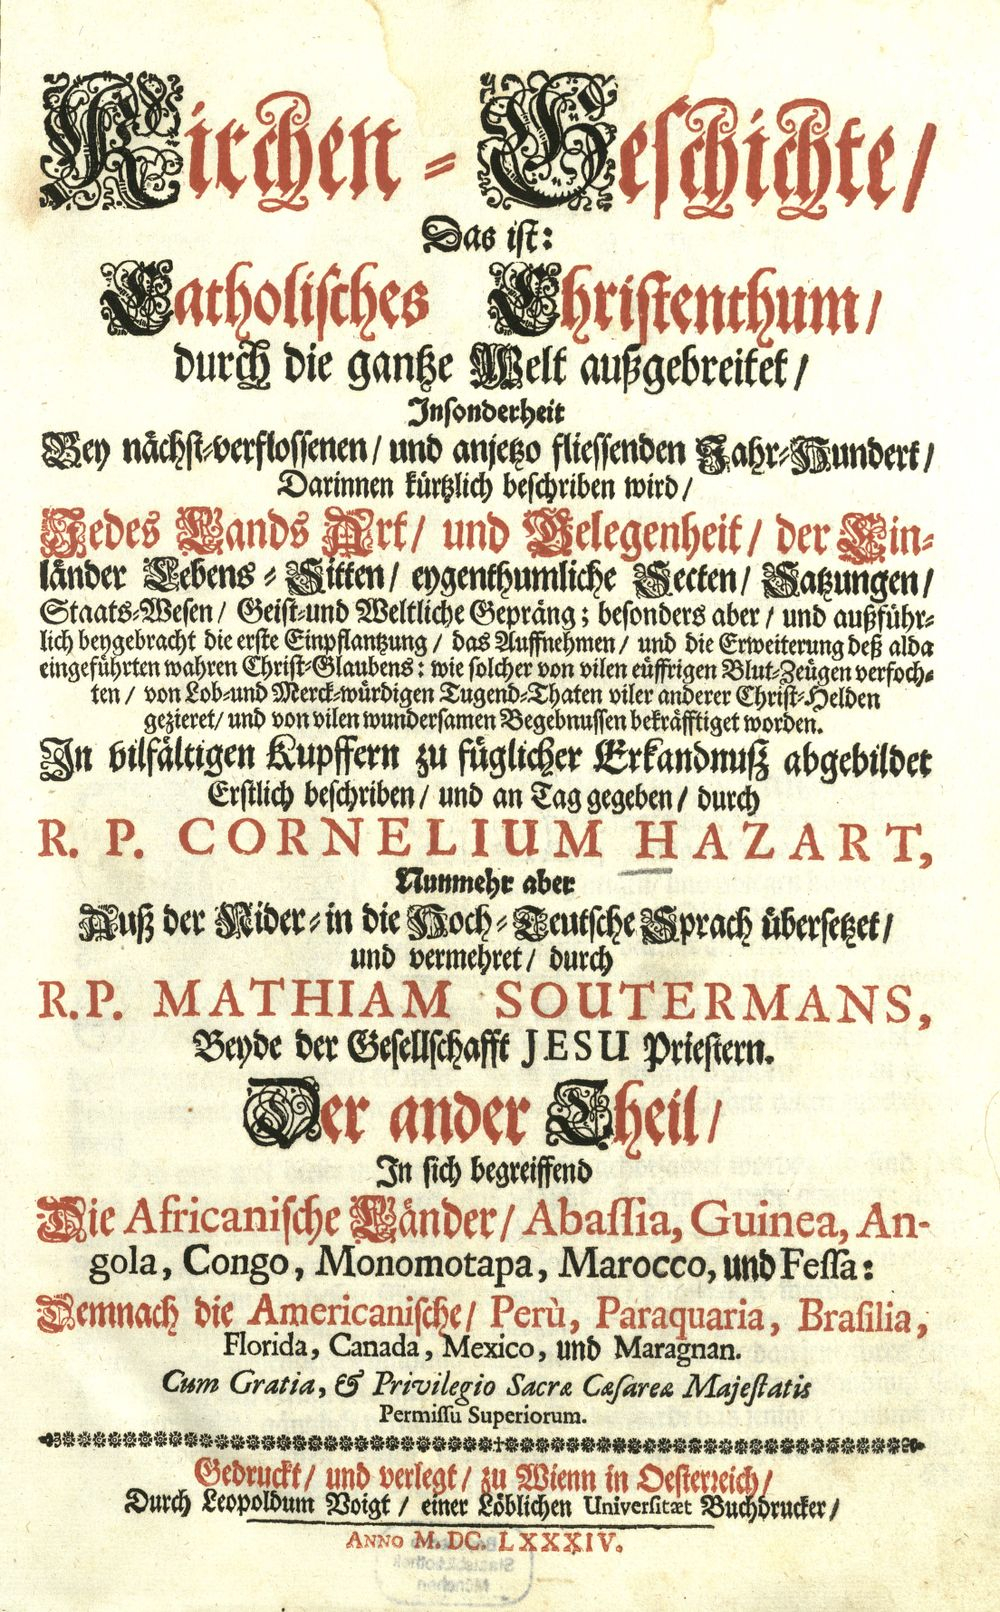 Kirchen-Geschichte/
Das ist:
Catholisches Christenthum/
durch die gantze Welt außgebreitet/
Insonderheit
Bey nächst-verflossenen/ und anjetzo fliessenden Jahr-Hundert/
Darinnen kürtzlich beschriben wird/
Jedes Lands Art/ und Gelegenheit/ der Ein-
länder Lebens-Sitten/ eygenthumliche Secten/ Satzungen/
Staats-Wesen/ Geist-und Weltliche Gepräng; besonders aber/ und außführ-
lich beygebracht die erste Einpflantzung/ das Auffnehmen/ und die Erweiterung deß alda
eingeführten wahren Christ-Glaubens: wie solcher von vilen eüffrigen Blut-Zeügen verfoch-
ten/ von Lob-und Merck-würdigen Tugend-Thaten viler anderer Christ-Helden
gezieret/ und von vilen wundersamen Begebnussen bekräfftiget worden.
In vilfältigen Kupffern zu füglicher Erkandnuß abgebildet
Erstlich beschriben/ und an Tag gegeben/ durch
R. P. CORNELIUM HAZART,
Nunmehr aber
Auß der Nider-in die Hoch-Teutsche Sprach übersetzet/
und vermehret/ durch
R. P. MATHIAM SOUTERMANS,
Beyde der Gesellschafft JESU Priestern.
Der ander Theil/
In sich begreiffend
Die Africanische Länder/ Abassia, Guinea, An-
gola, Congo, Monomotapa, Marocco, und Fessa:
Demnach die Americanische/ Perù, Paraquaria, Brasilia,
Florida, Canada, Mexico, und Maragnan.
Cum Gratia, & Privilegio Sacræ Cæsareæ Majestatis
Permissu Superiorum.
Gedruckt/ und verlegt/ zu Wienn in Oesterreich/
Durch Leopoldum Voigt/ einer Löblichen Universitæt Buchdrucker/
ANNO M. DC. LXXXIV.